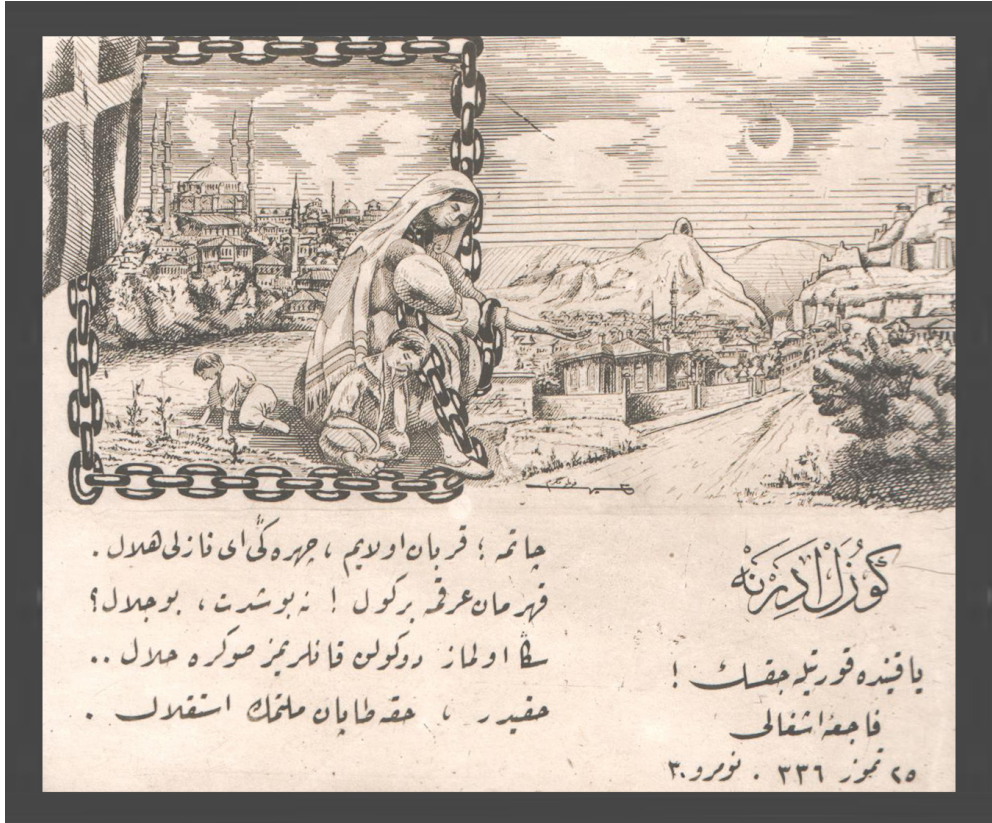 كوزل ادرنه
ياقينده قورتيله جقسك !
فاجعهٔ اشغالى
٢٥ تموز ٣٣٦ . نومرو ٣٠
چاتمه ؛ قربان اولايم ، چهره ڭى اى نازلى هلال .
قهرمان عرقمه بر كول ! نه بو شدت ، بو جلال ؟
سڭا اولماز دوكولن قانلريمز صوكره حلال ..
حقيدر ، حقه طاپان ملتمك استقلال .